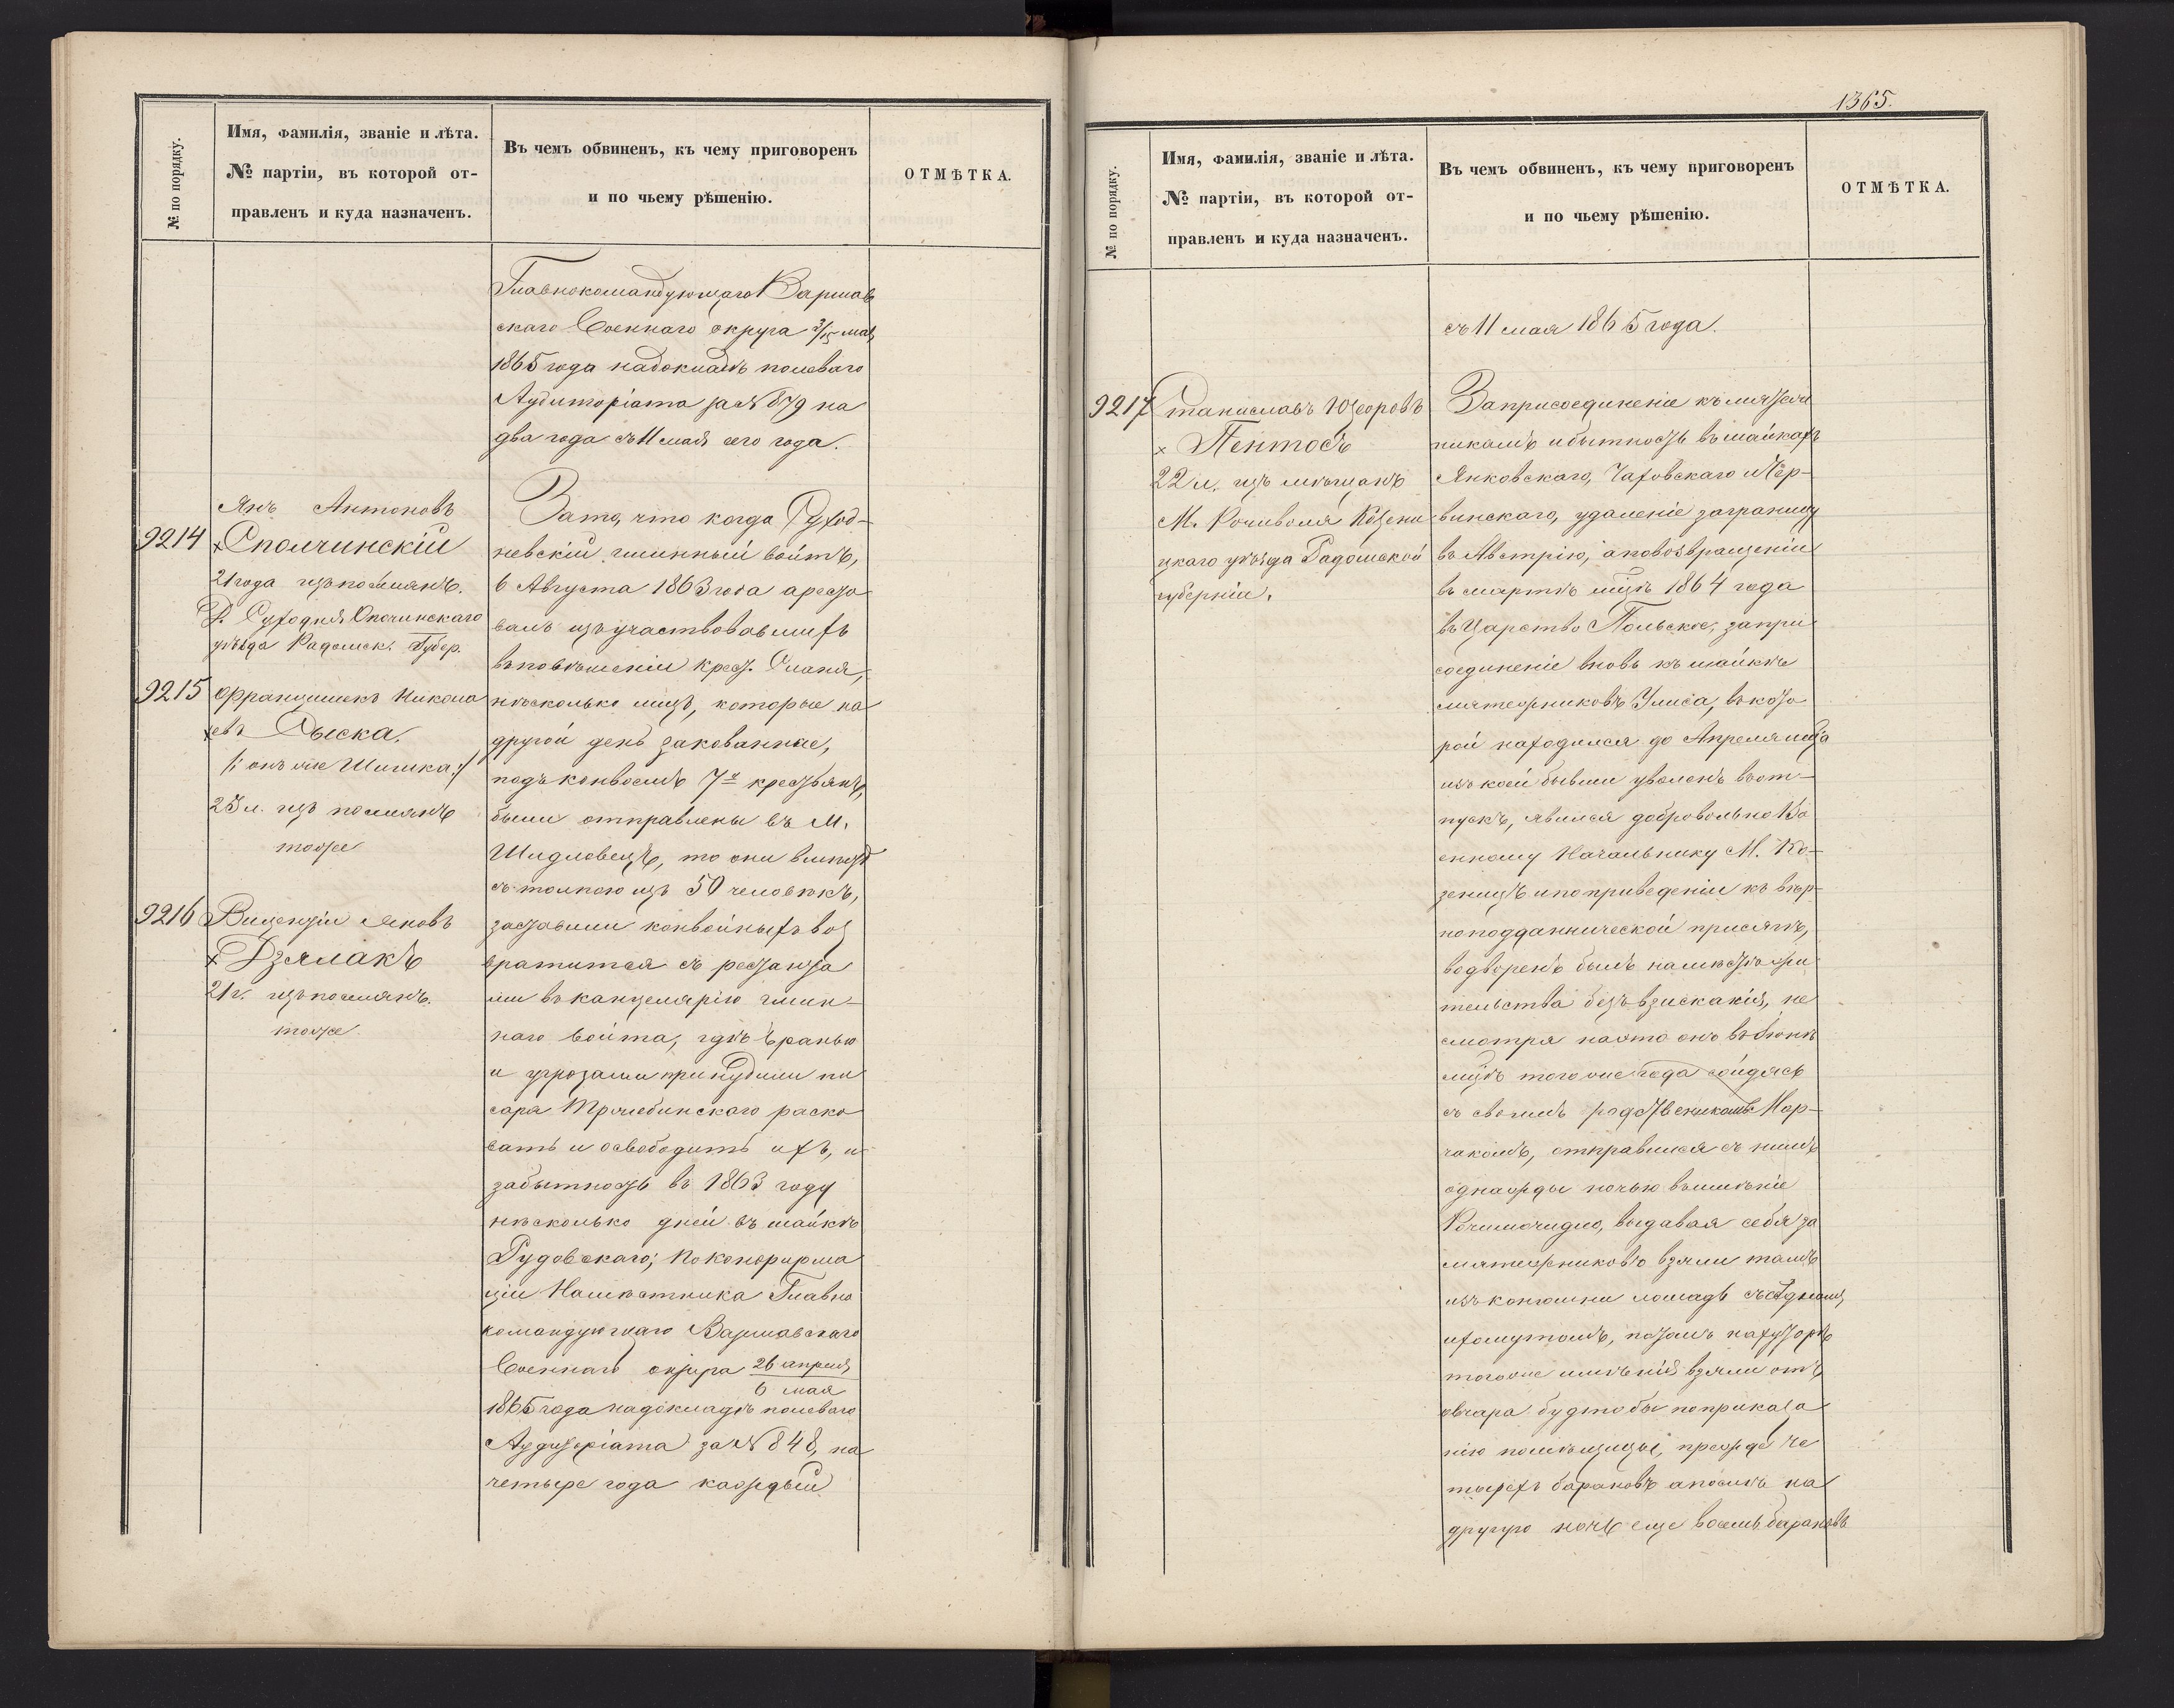 № по порядку.
Имя, фамилія, званіе и лѣта.
№ партіи, въ которой от-
правленъ и куда назначенъ.
Въ чемъ обвиненъ, къ чему приговоренъ
и по чьему рѣшенію.
ОТМѢТКА.
Главнокомандующаго Варшав
скаго Военнаго округа 3/15 мая
1865 года на докладѣ полеваго
Аудиторіата за № 879 на
два года съ 11 мая сего года.
9214
Янъ Антоновъ
Сполчинскій
21 года изъ посмянъ.
Д. Суходня Опочинскаго
уѣзда Радомск. Губер.
9215
Францишекъ Никола
евъ Дыска.
/: онъ же Шишка :/
23 л. изъ посмянъ
тоже
9216
Виценцій Яновъ
Дзялакъ
21 г. изъ посмянъ.
тоже.
За то, что когда Суход-
невскій гминный войтъ,
6 Августа 1863 года аресто
валъ изъ участвовавшихъ
въ повѣшеніи крест.
нѣсколько лицъ, которые на
другой день закованные,
подъ конвоемъ 7и крестьянъ,
были отправлены въ М.
Шидловецъ, то они вмѣстѣ
съ толпою изъ 50 человѣкъ,
заставили конвойныхъ воз
вратится съ рестанта
ми въ канцелярію гмин-
наго войта, гдѣ бранью
и угрозами принудили пи
саря раско
вать и освободить ихъ, и
за бытность въ 1863 году
нѣсколько дней въ шайкѣ
Рудовскаго; по конфирма
ціи Намѣстника Главно
командующаго Варшавскаго
Военнаго округа 26 апрѣля
6 мая
1865 года на докладѣ полеваго
Аудиторіата за № 848, на
четыре года каждый
1365.
№ по порядку.
Имя, фамилія, званіе и лѣта.
№ партіи, въ которой от-
правленъ и куда назначенъ.
Въ чемъ обвиненъ, къ чему приговоренъ
и по чьему рѣшенію.
ОТМѢТКА.
съ 11 мая 1865 года.
9217
Станиславъ Юзефовъ
Пентосъ
22 л. изъ мѣщанъ
М. Рочиволя Козени
цкаго уѣзда Радомской
губерніи.
За присоединеніе къ мятеж
никамъ и бытность въ шайкахъ
Янковскаго, Чаховскаго и Чер-
винскаго, удаленіе за границу
въ Австрію, а по возвращеніи
въ мартѣ мцѣ 1864 года
въ Царство Польское, за при
соединеніе вновь къ шайкѣ
мятежниковъ Улиса, въ кото
рой находился до Апрѣля мца
изъ коей бывши уволенъ въ от-
пускъ, явился добровольно Во
енному Начальнику М. Ко-
зеницъ и по приведеніи къ вѣр-
ноподданнической присягѣ,
водворенъ былъ на мѣсто жи
тельства безъ взисканія, не
смотря на что онъ въ Іюнѣ
мцѣ того же года сойдясь
съ своимъ родственикомъ Мар-
чакомъ, отправился съ нимъ
однажды ночью въ имѣніе
выдавая себя за
мятежниковъ взяли тамъ
изъ конюшни лошадь съ сѣдломъ
и хомутомъ, потомъ на хуторѣ
того же имѣнія взяли отъ
овчара будто бы по приказа
нію помѣщицы, прежде че
тырехъ барановъ а послѣ на
другую ночь еще восемь барановъ